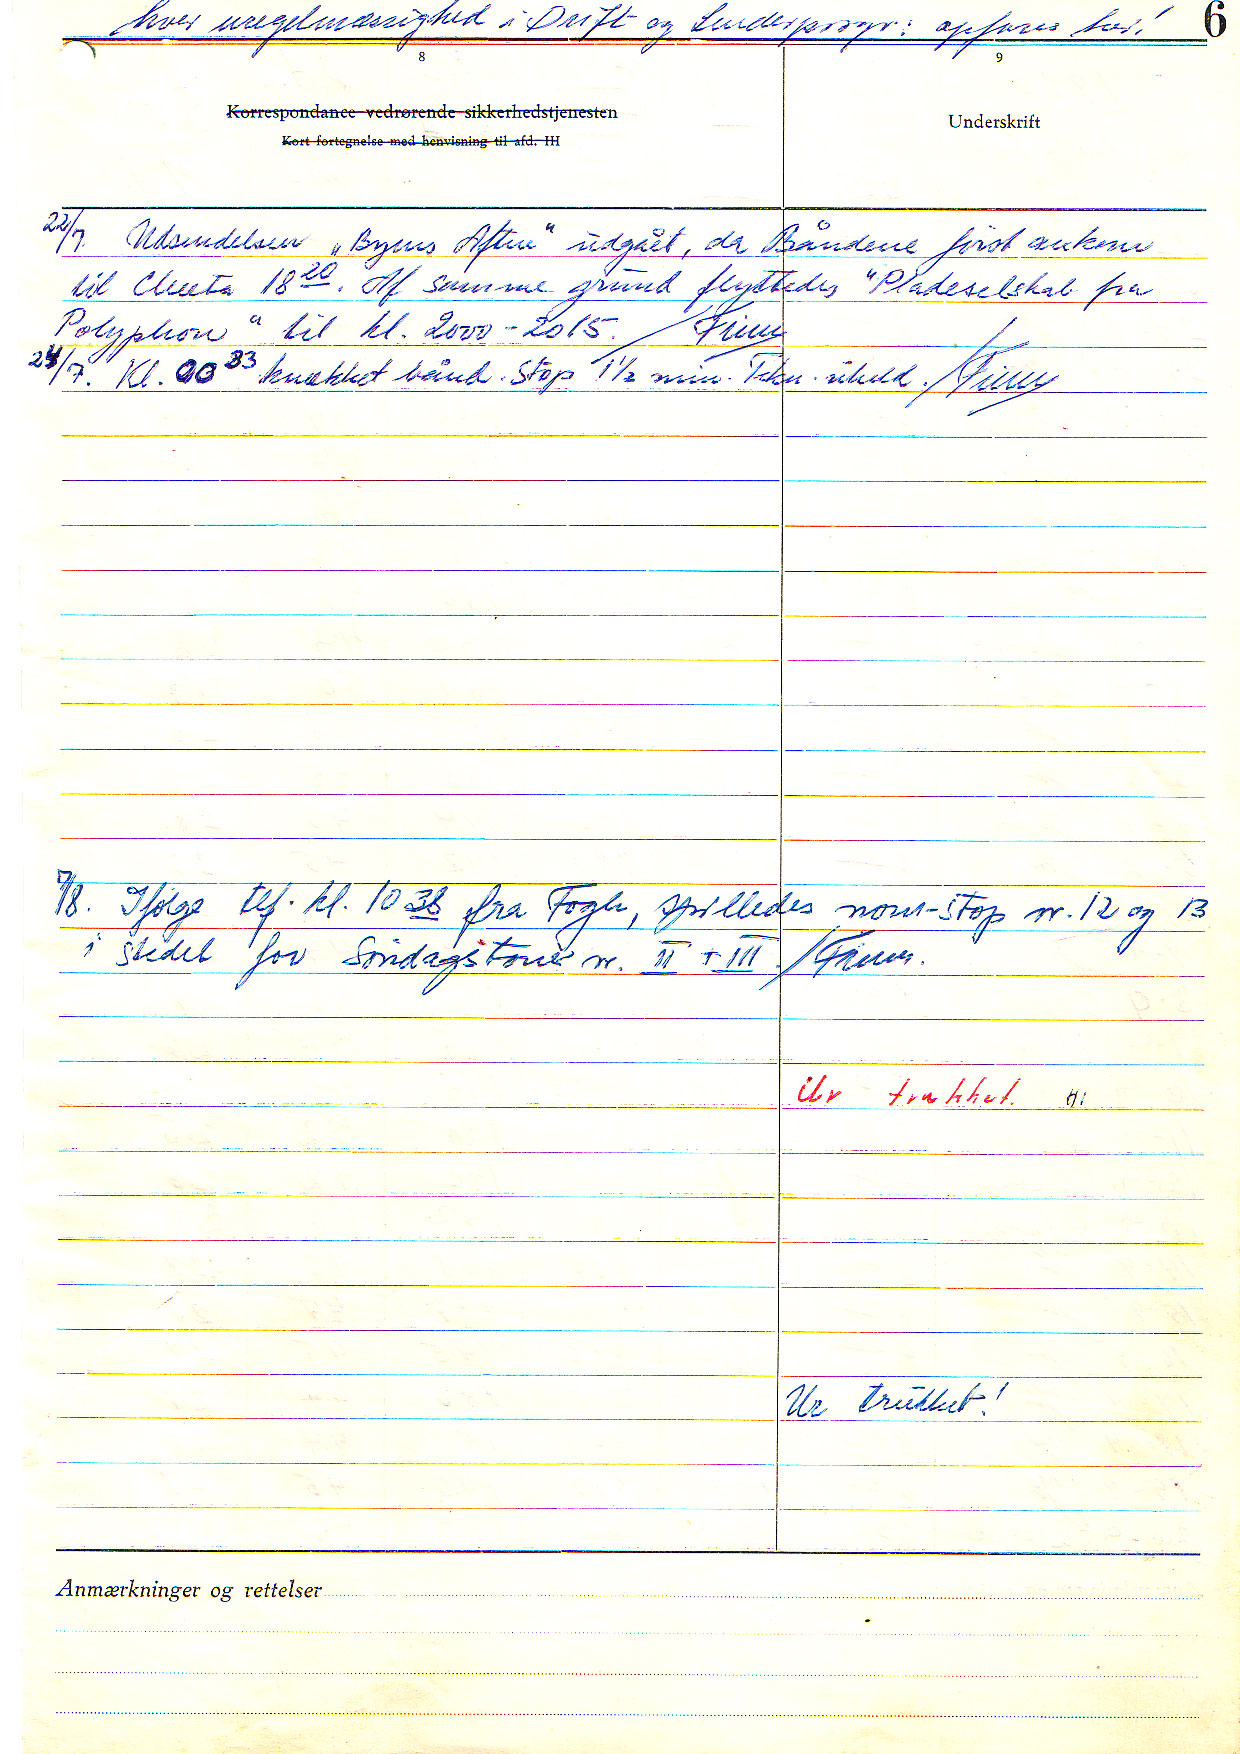 hver uregelmæssighed i Drift og Senderprogr: opføres her!
6
8
9
Korrespondance vedrørende sikkerhedstjenesten
Kort fortegnelse med henvisning til afd. III
Underskrift
22/7. Udsendelsen "Byens Aften" udgået, da Båndene først ankom
til Cheeta 18 20. Af samme grund flyttedes "Pladeselskab fra
Polyphon" til kl. 2000-2015. /
24/7. Kl. 00 33 knækket bånd. Stop 1 1/2 min. Tekn. uheld. /
7/8. Ifølge tlf. kl. 10 38 fra Fogh, spilledes non-stop nr. 12 og 13
i stedet for Søndagstoner nr. II + III. /
Ur trukket.
Ur trukket!
Anmærkninger og rettelser